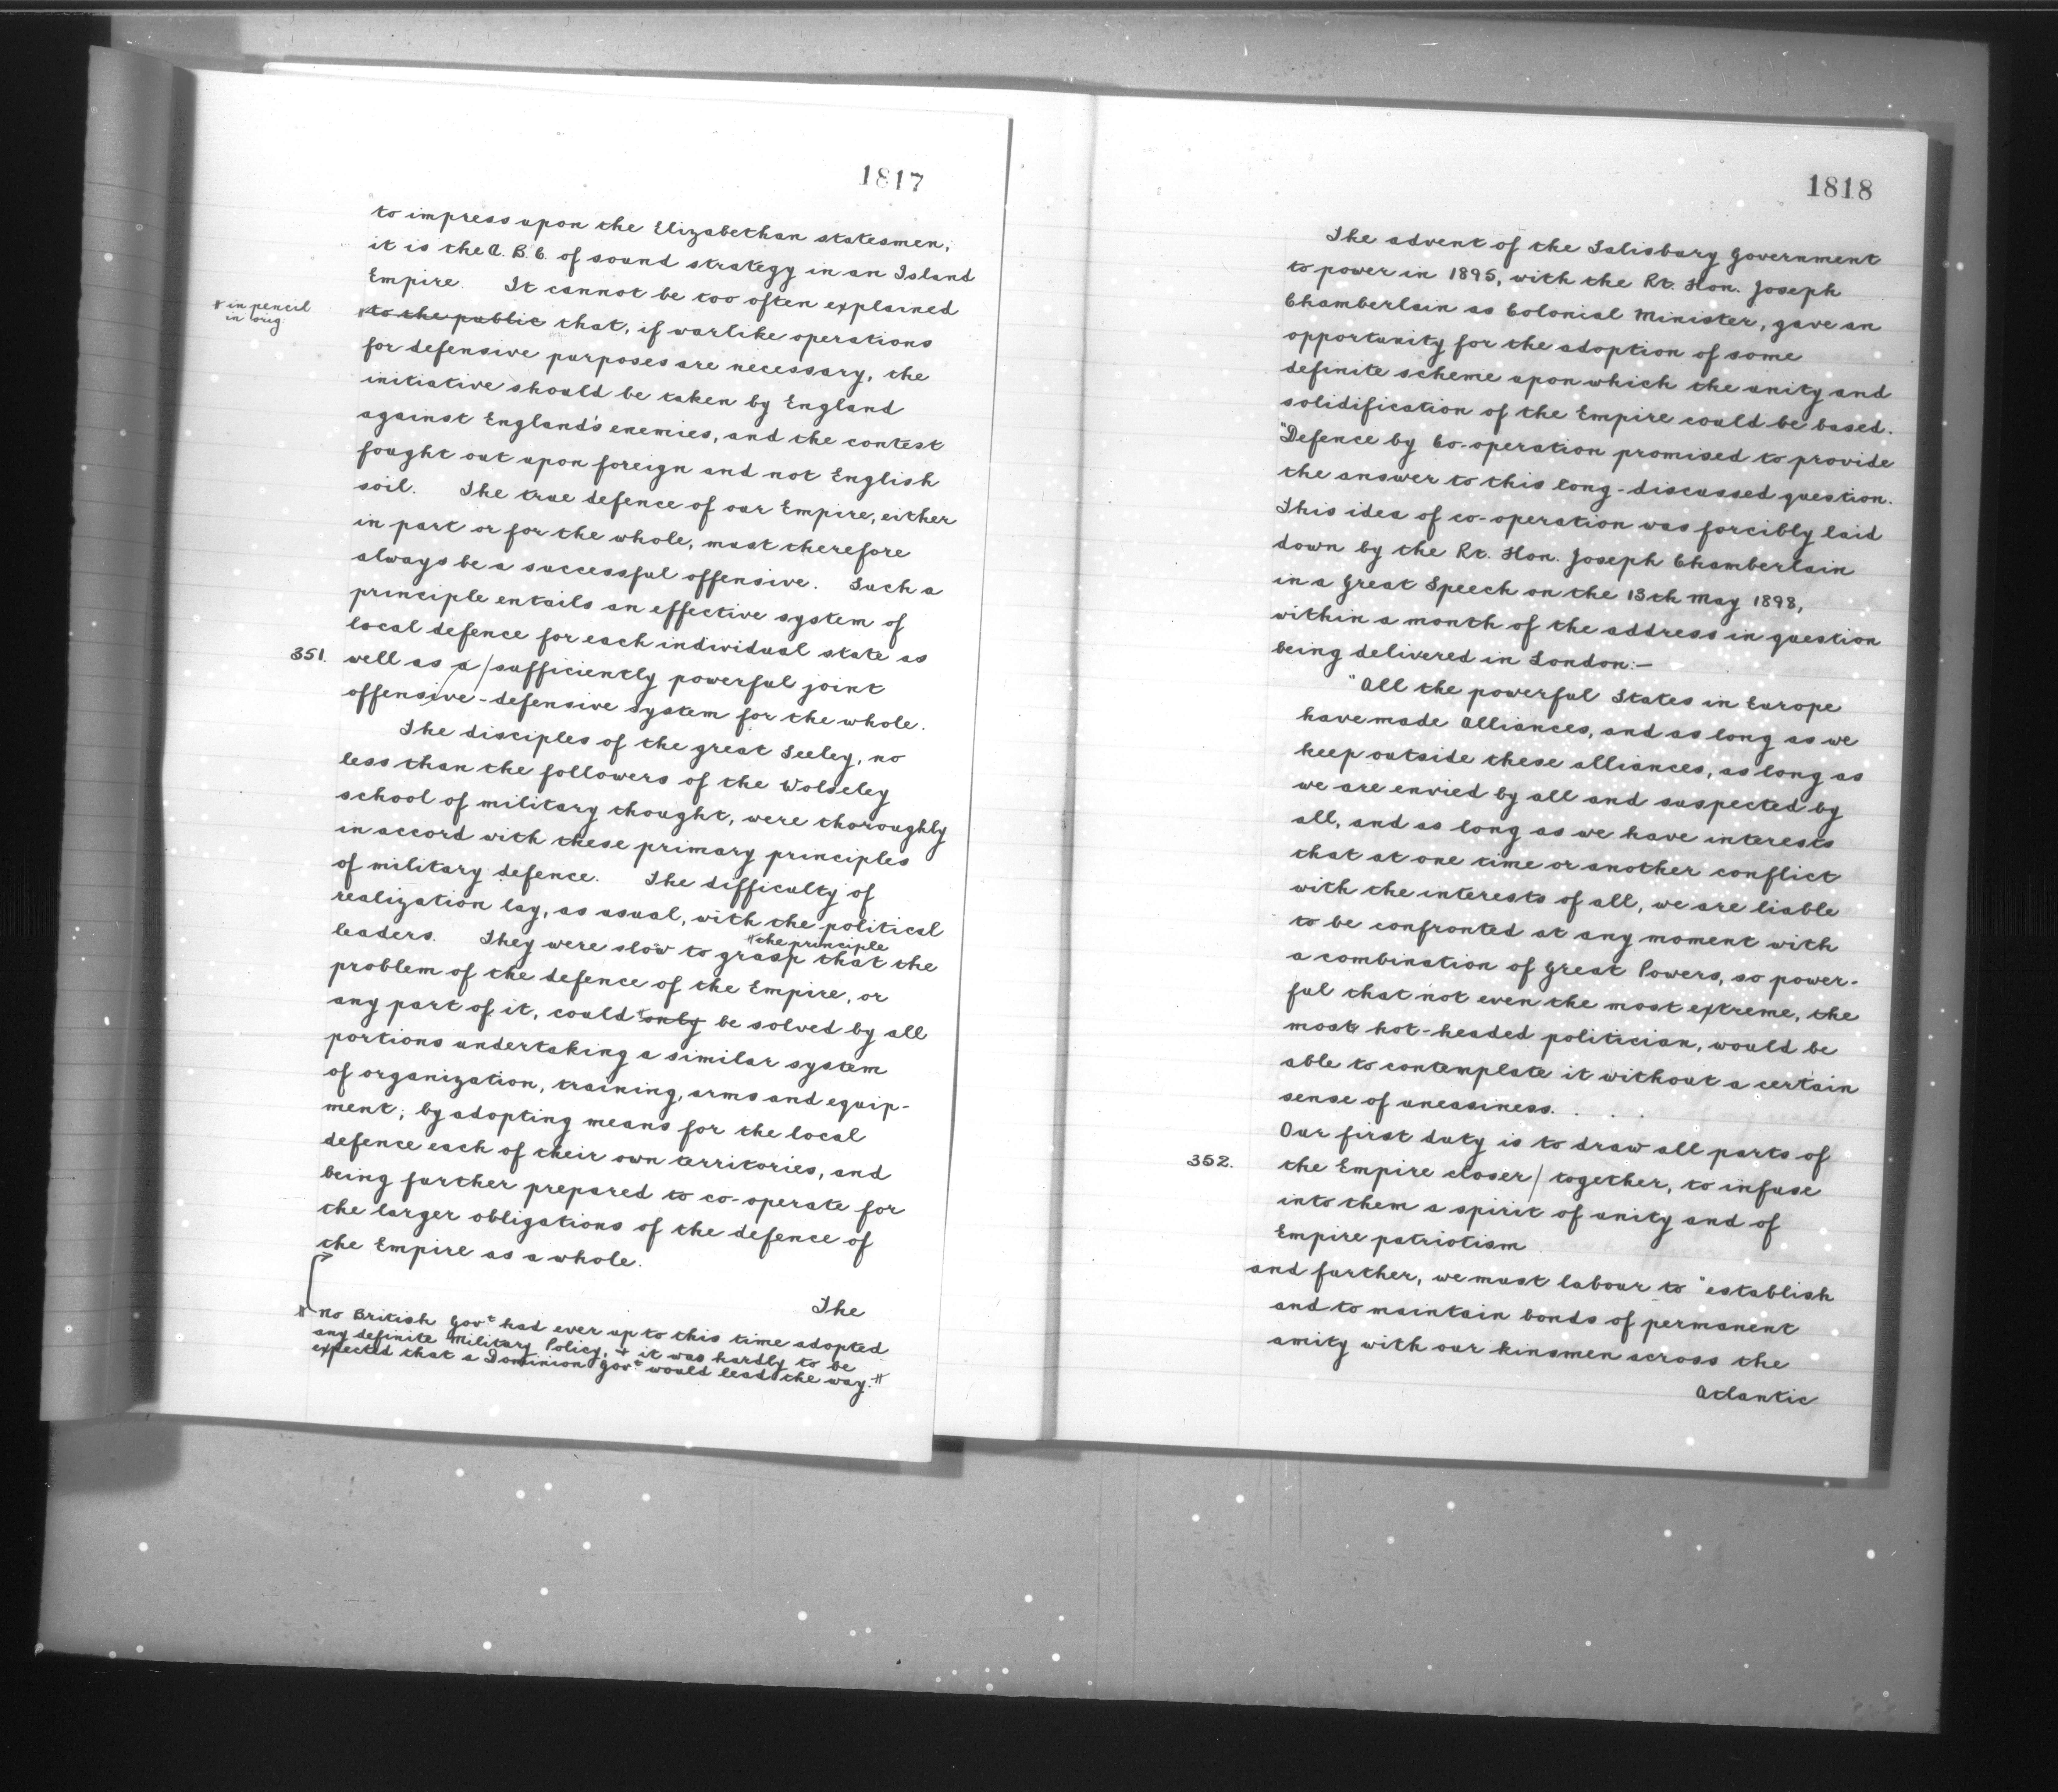 1817
to impress upon the Elizabethan statesmen,
it is the A. B. C. of sound strategy in an Island
Empire. It cannot be too often explained
* in pencil
in orig
*to the public that, if warlike operations
for defensive purposes are necessary, the
initiative should be taken by England
against England's enemies, and the contest
fought out upon foreign and not English
soil. The true defence of our Empire, either
in part or for the whole, must therefore
always be a successful offensive. Such a
principle entails an effective system of
local defence for each individual state as
351. well as a / sufficiently powerful joint
offensive-defensive system for the whole.
The disciples of the great Seeley, no
less than the followers of the Wolseley
school of military thought, were thoroughly
in accord with these primary principles
of military defence. The difficulty of
realization lay, as usual, with the political
"the principle
leaders. They were slow to grasp that the
problem of the defence of the Empire, or
any part of it, could *only be solved by all
portions undertaking a similar system
of organization, training, arms and equip-
ment; by adopting means for the local
defence each of their own territories, and
being further prepared to co-operate for
the larger obligations of the defence of
the Empire as a whole.
The
# no British Govt had ever up to this time adopted
any definite Military Policy, & it was hardly to be
expected that a Dominion Govt would lead the way. #
1818
The advent of the Salisbury Government
to power in 1895, with the Rt. Hon. Joseph
Chamberlain as Colonial Minister, gave an
opportunity for the adoption of some
definite scheme upon which the unity and
solidification of the Empire could be based.
"Defence by Co-operation promised to provide
the answer to this long-discussed question.
This idea of co-operation was forcibly laid
down by the Rt. Hon. Joseph Chamberlain
in a Great Speech on the 13th May 1898,
within a month of the address in question
being delivered in London:—
"All the powerful States in Europe
have made Alliances, and as long as we
keep outside these alliances, as long as
we are envied by all and suspected by
all, and as long as we have interests
that at one time or another conflict
with the interests of all, we are liable
to be confronted at any moment with
a combination of Great Powers, so power-
ful that not even the most extreme, the
most hot-headed politician, would be
able to contemplate it without a certain
sense of uneasiness. . . .
Our first duty is to draw all parts of
352. the Empire closer / together, to infuse
into them a spirit of unity and of
Empire patriotism
and further, we must labour to "establish
and to maintain bonds of permanent
amity with our kinsmen across the
Atlantic